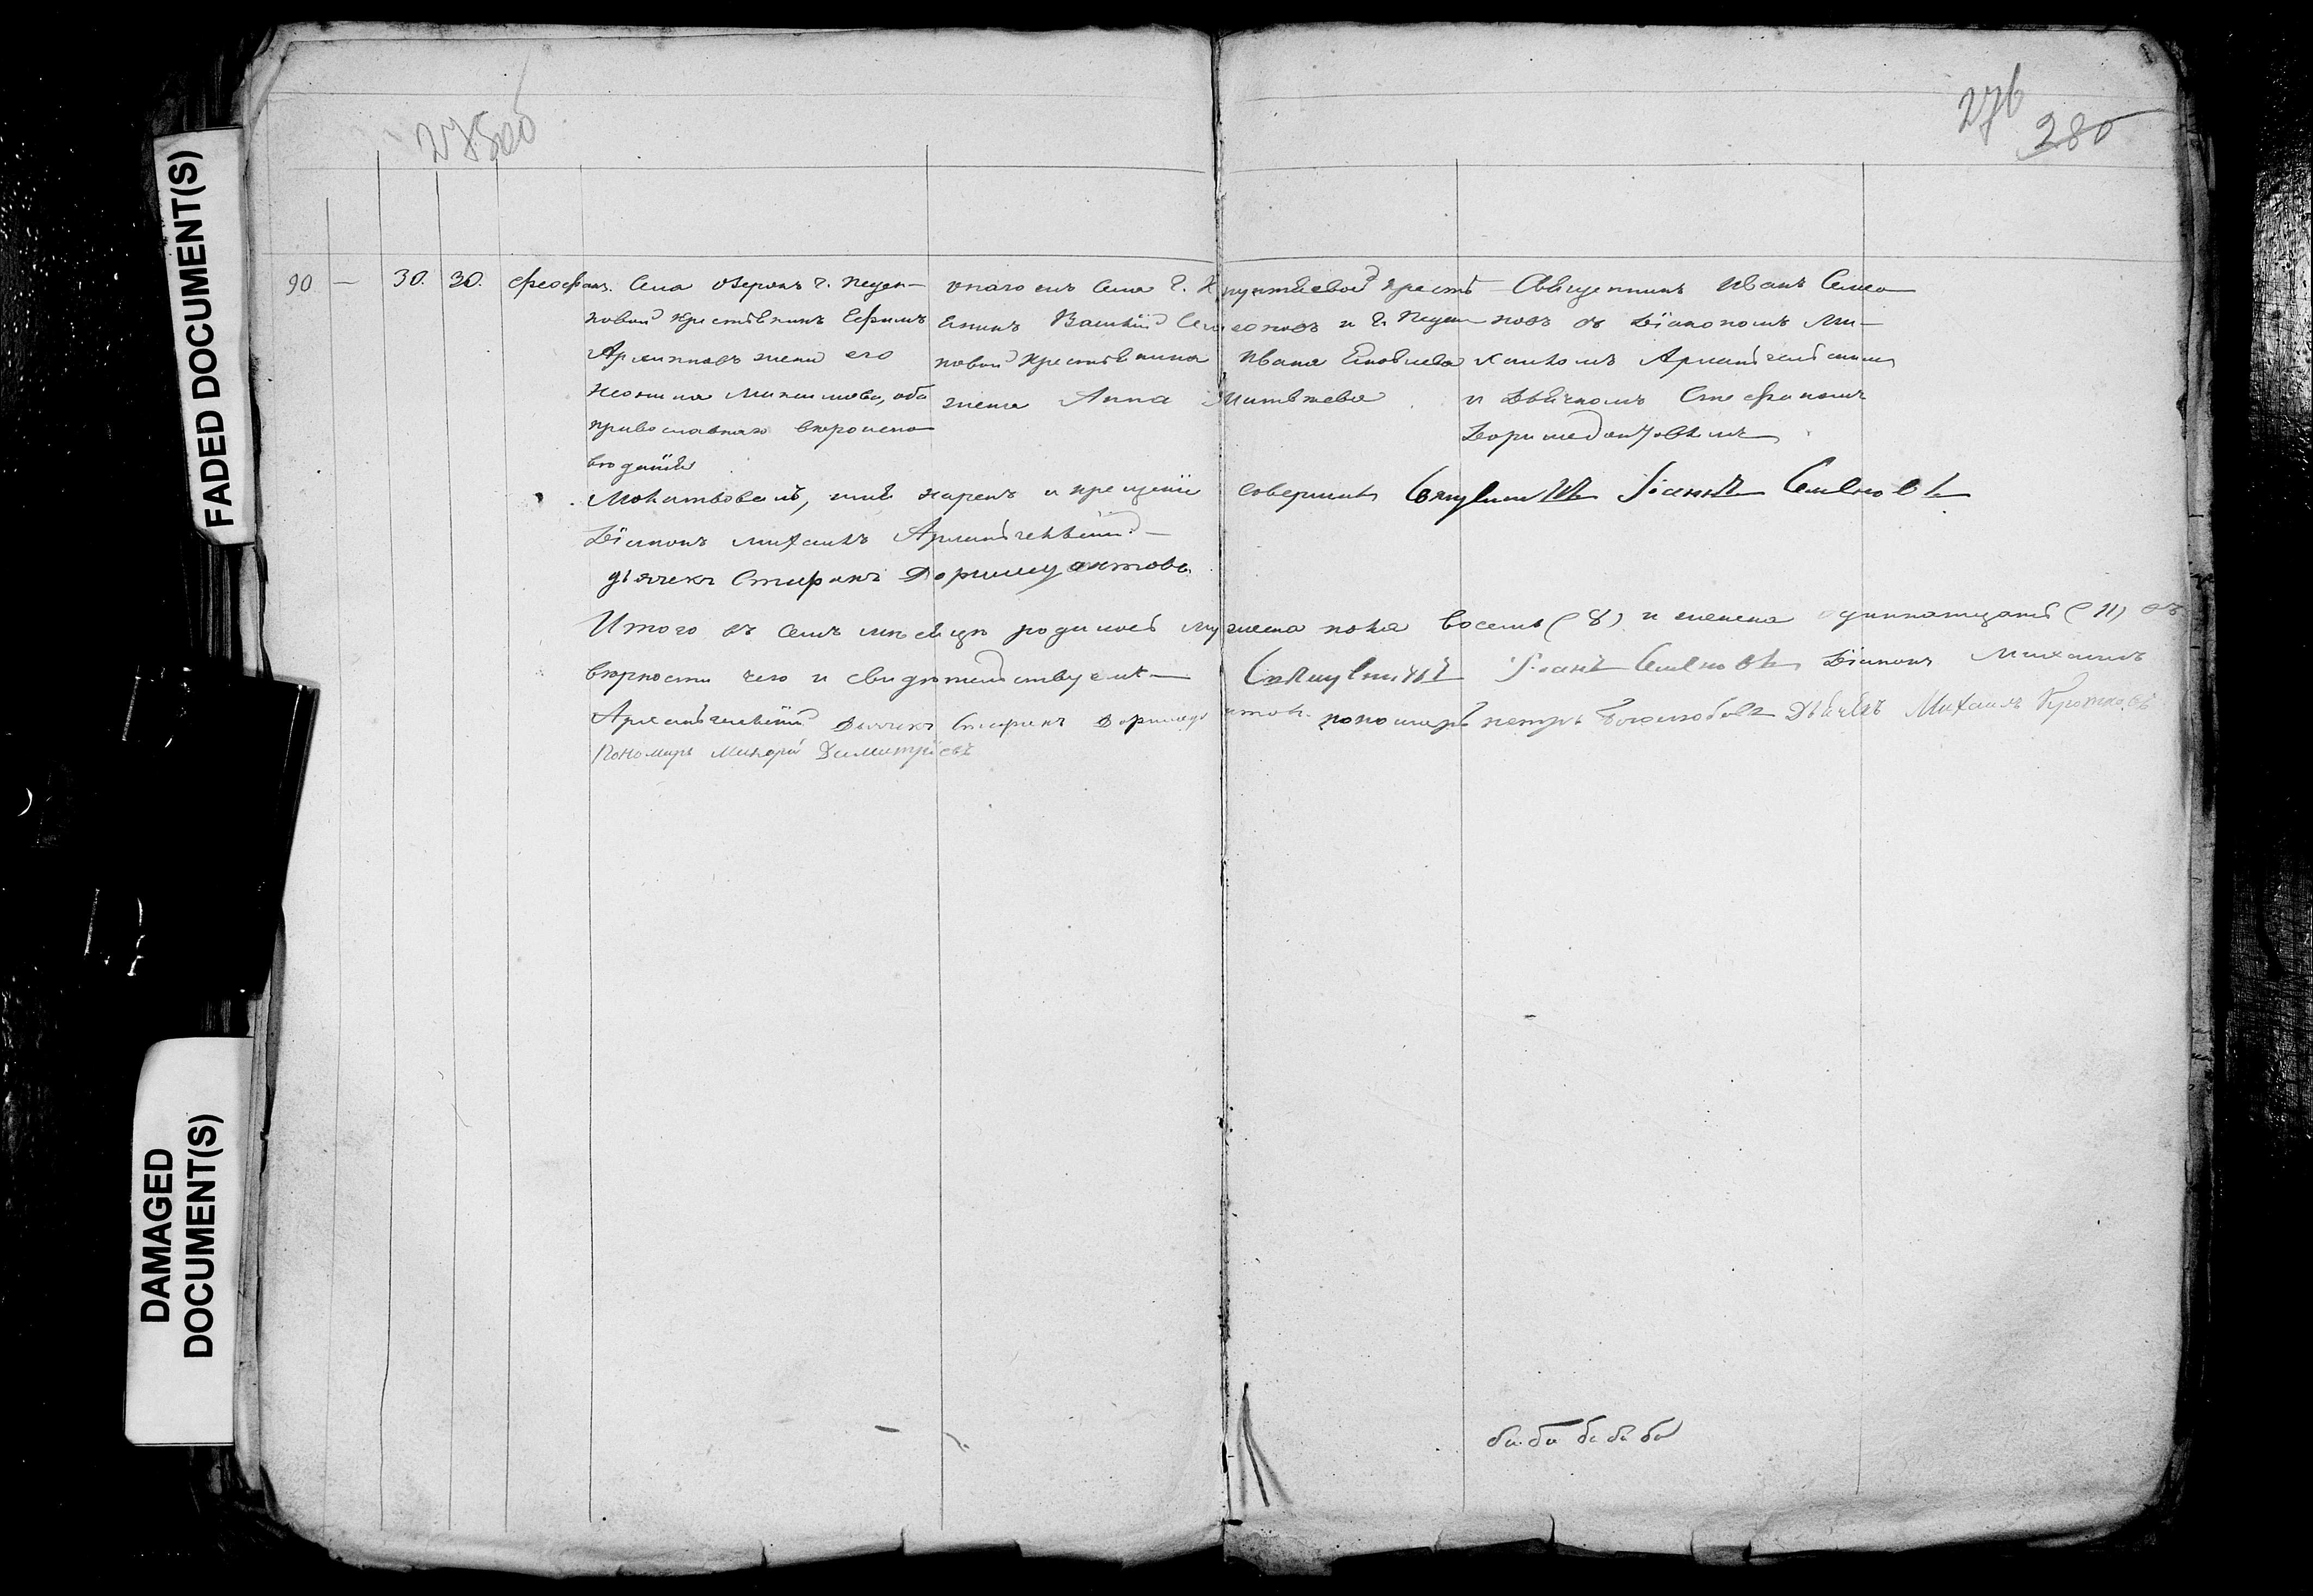 FADED DOCUMENT(S)
DAMAGED DOCUMENT(S)
275об
276
280
90 — 30. 30. Феофанъ.
Села Озерокъ г.
новой крестьянинъ Ефимъ
Архиповъ жена его
Максимова, оба
православнаго вѣроиспо
вѣданія
онаго жъ села г.
янинъ Василій Семеоновъ и г.
новой крестьянина Ивана Яковлева
жена Анна Матвѣева
Священникъ Иванъ Семео
новъ съ Діакономъ Ми-
хаиломъ Архангельскимъ
и Дьячкомъ Стефаномъ
Доримедонтовымъ
Молитвовалъ, имя нарекъ и крещеніе совершилъ Священникъ Іоаннъ Семеновъ
Діаконъ Михаилъ Архангельскій
дьячекъ Стефанъ Доримедонтовъ
Итого въ семъ мѣсяцѣ родилось мужеска пола восемь (8) и женска одиннатцать (11) въ
вѣрности чего и свидѣтельствуемъ Священникъ Іоаннъ Семеновъ Діаконъ Михаилъ
Архангельскій Дьячекъ Стефанъ Доримедонтовъ. пономарь Петръ Боголюбовъ Дьячекъ Михаилъ Кротковъ
Пономарь Димитріевъ
ба ба ба ба ба